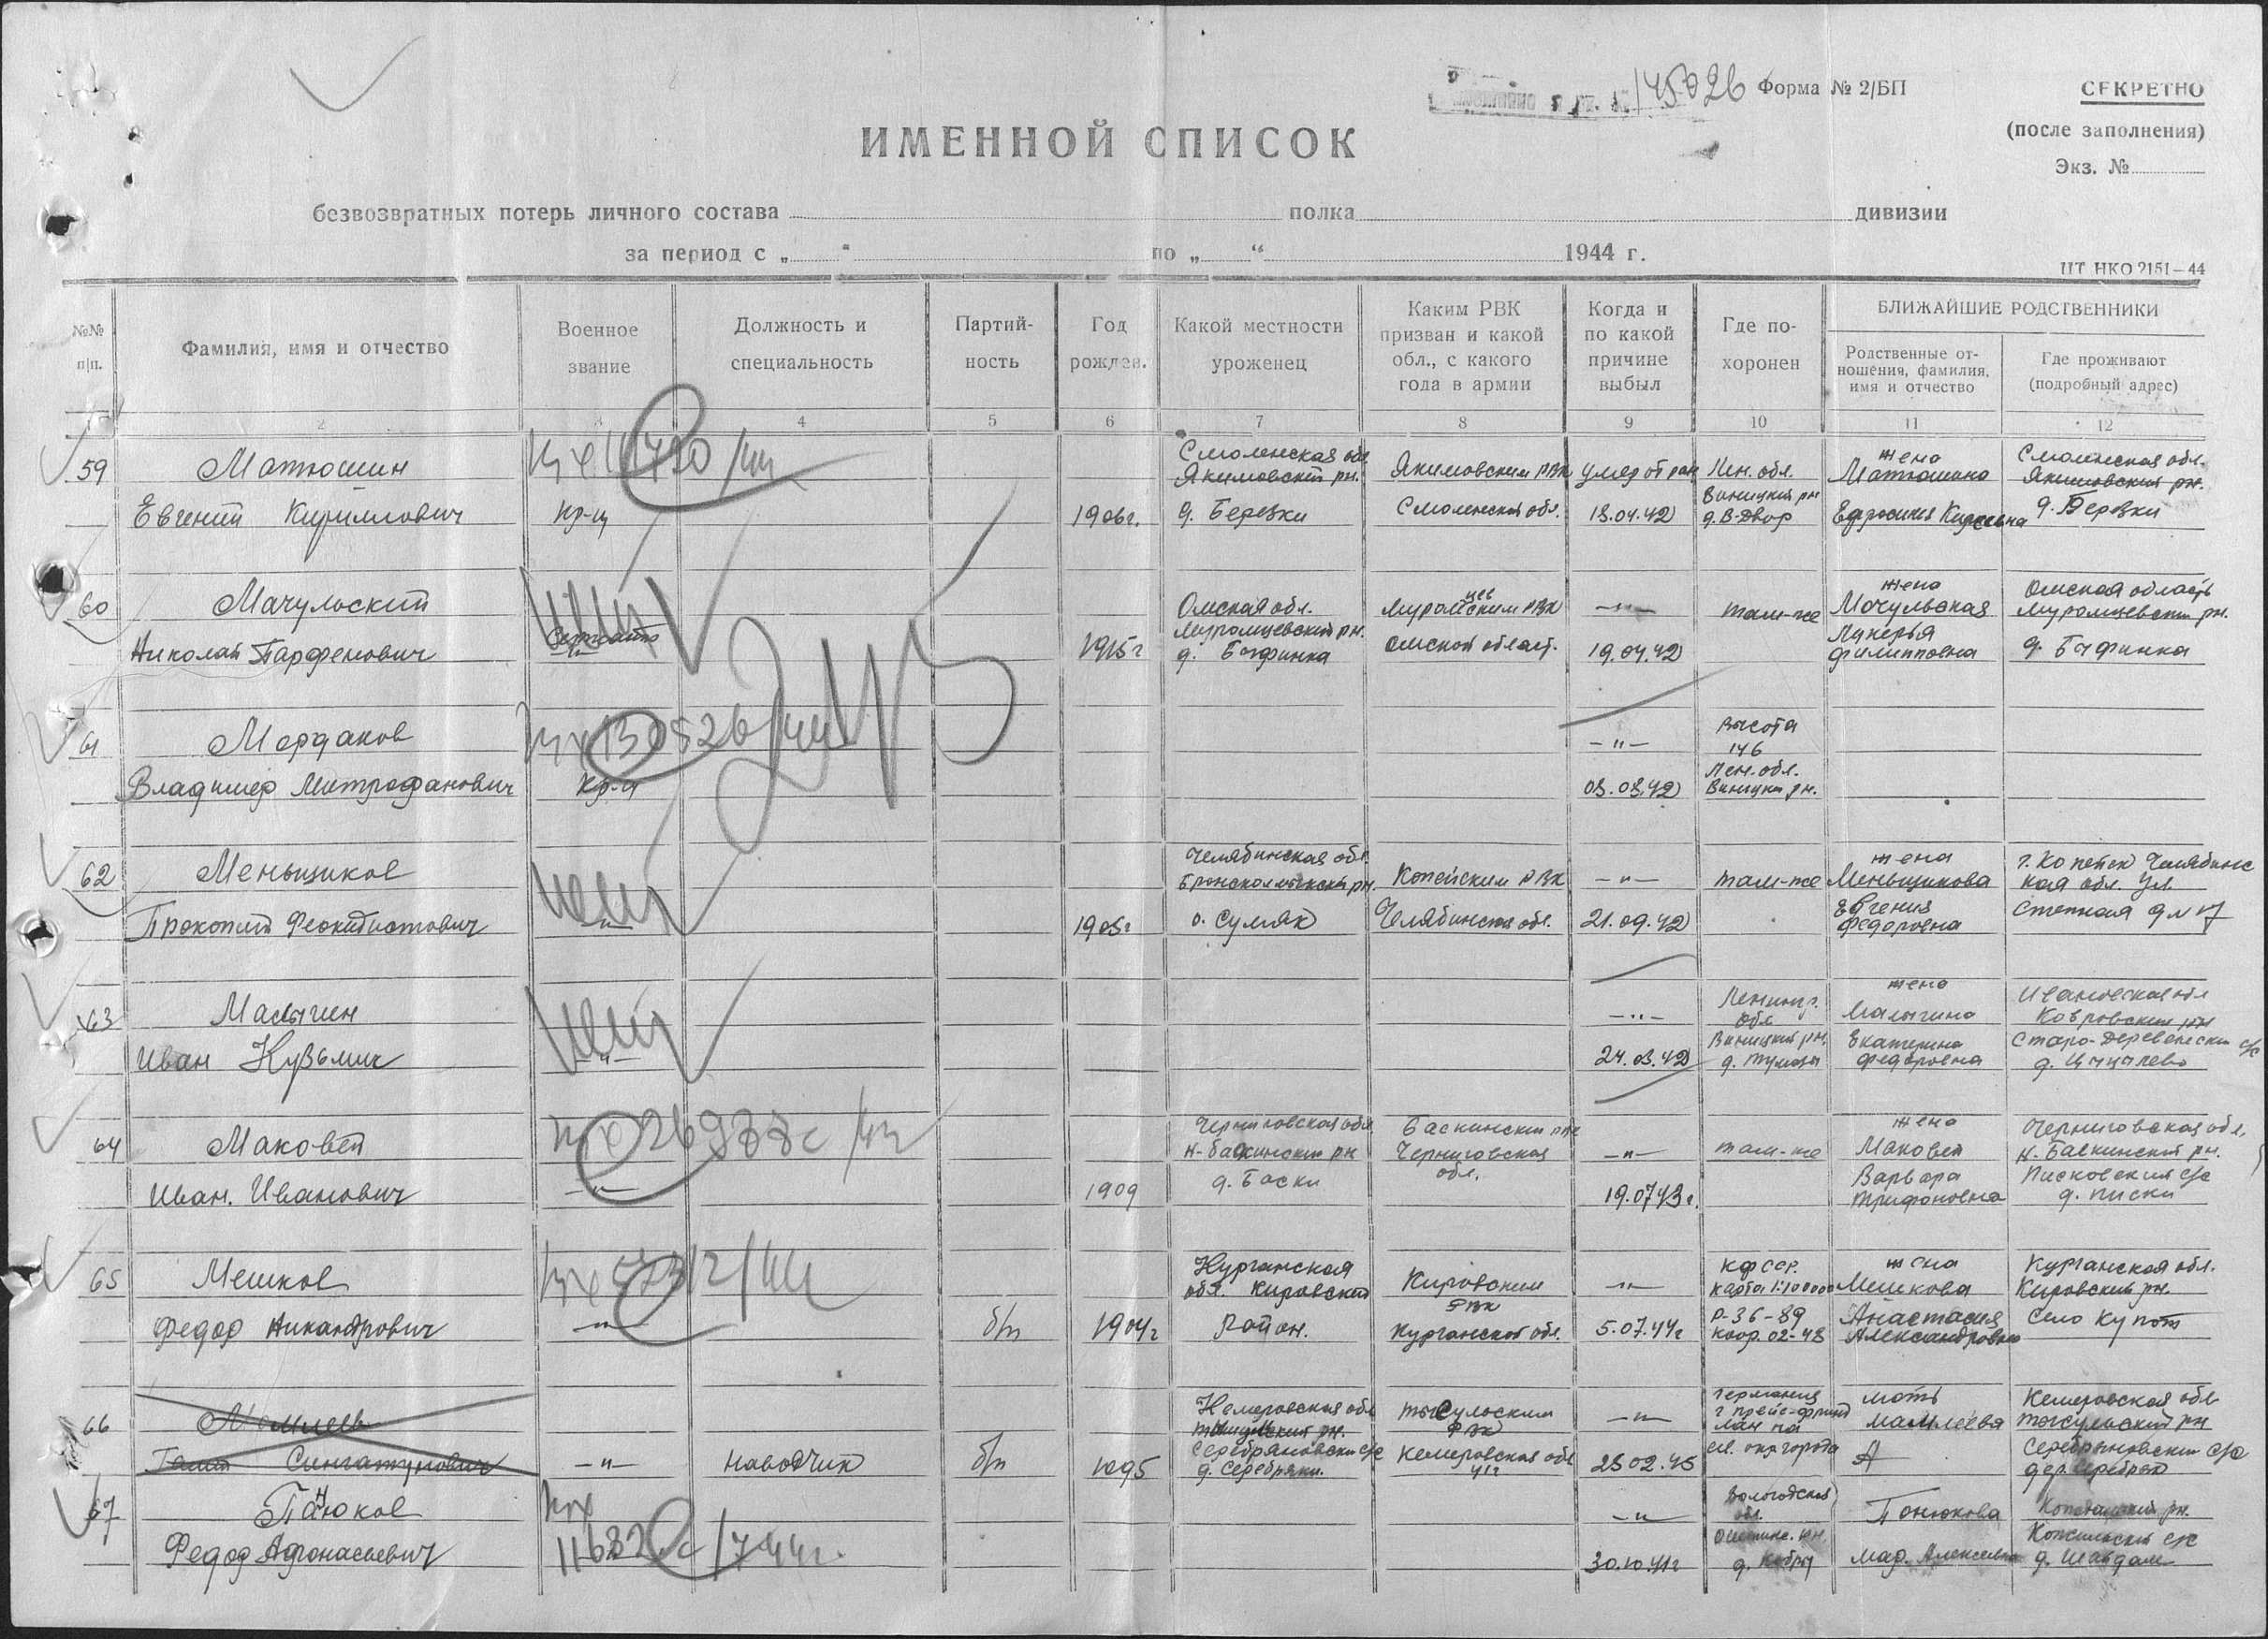 145026 Форма № 2/БП
СЕКРЕТНО
(после заполнения)
Экз. №
ИМЕННОЙ СПИСОК
безвозвратных потерь личного состава полка дивизии
за период с „ “ по „ “ 1944 г.
ЦТ НКО 2151—44
№№ п|п.
Фамилия, имя и отчество
Военное звание
Должность и специальность
Партий-ность
Год рожден.
Какой местности уроженец
Каким РВК призван и какой обл., с какого года в армии
Когда и по какой причине выбыл
Где по-хоронен
БЛИЖАЙШИЕ РОДСТВЕННИКИ
Родственные от-ношения, фамилия, имя и отчество
Где проживают (подробный адрес)
2 3 4 5 6 7 8 9 10 11 12
59 Матюшин
Евгений Кириллович
Кр-ц
1906г.
Смоленская обл.
Якимовский рн.
д. Березки
Якимовским РВК
Смоленской обл.
умер от ран
18.04.42
Лен. обл.
Виницкий рн
д. В-Двор
жена
Матюшина
Ефросиния
Смоленская обл.
Якимовский рн.
д. Березки
60 Мачульский
Николай Парфенович
Сержант
1915г
Омская обл.
Муромцевский рн.
Муромцевским РВК
Омской област.
—"—
19.04.42
там-же
жена
Мочульская
Лукерья
Филипповна
Омская область
Муромцевский рн.
61 Мордаков
Владимир Митрофанович
130526/44
Кр-ц
—"—
Высота
146
Лен. обл.
Виницки рн.
62 Меньщиков
Прокопий Феоктистович
—"—
Челябинская обл.
о. Сулляк
Копейским РВК
Челябинской обл.
—"—
21.09.42
там-же
жена
Меньщикова
Евгения
Федоровна
г. Копейск Челябинс
кая обл. ул.
Степная
63 Малыгин
Иван Кузьмич
—"—
—"—
24.03.42
Ленинг.
обл
Виницкий рн.
жена
Малыгина
Екатерина
Федоровна
Ивановская обл
Ковровский рн
Старо-Деревенский с/с
64 Маковей
Иван. Иванович
—"—
1909
Черниговская обл.
Н-Баскинский рн
д. Баски
Баскинским рвк
Черниговская
обл.
—"—
19.07.43г.
там-же
жена
Маковей
Варвара
Трифоновна
Черниговская обл.
Н-Баскинский рн.
Писковский с/с
д. Писки
65 Мешков
Федор Никандрович
—"—
б/п
1904г
Курганская
обл. Кировский
Район.
Кировским
РВК
Курганской обл.
—"—
5.07.44г
КФССР.
карта 1:100000
Р-36-89
коор. 02-48
жена
Мешкова
Анастасия
Александровна
Курганская обл.
Кировский рн.
Село
66 Мамлеев
—"—
Наводчик
б/п
Кемеровская обл
Серебряновский с/с
д. Серебряки.
Тысульским
РВК
Кемеровская обл
—"—
28.02.45
Германия
мать
Мамлеева
А
Кемеровская обл
Тысульский рн
Серебряновский с/с
67 Панюков
Федор Афонасьевич
—"—
30.10.41г
Вологодская
обл.
Понюкова
Мар. Алексеевна